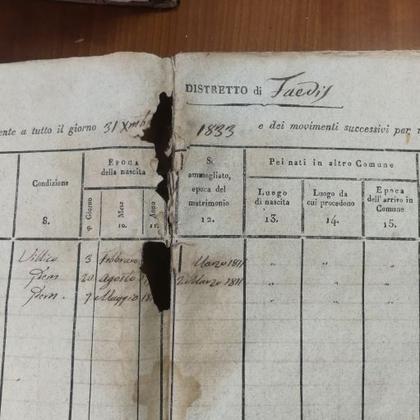 DISTRETTO di Faedis
ente a tutto il giorno 31 Xmbre 1833 e dei movimenti successivi per
Condizione
8.
EPOCA
della nascita
Giorno
9.
Mese
10.
Anno
11.
Se
ammogliato,
epoca del
matrimonio
12.
Pei nati in altro Comune
Luogo
di nascita
13.
Luogo da
cui procedono
14.
Epoca
dell'arrivo in
Comune
15.
Villico 3 Febbraro Marzo 1811 " " "
Idem 20 Agosto 2 Marzo 1811 " " "
Idem. 7 Maggio " " "